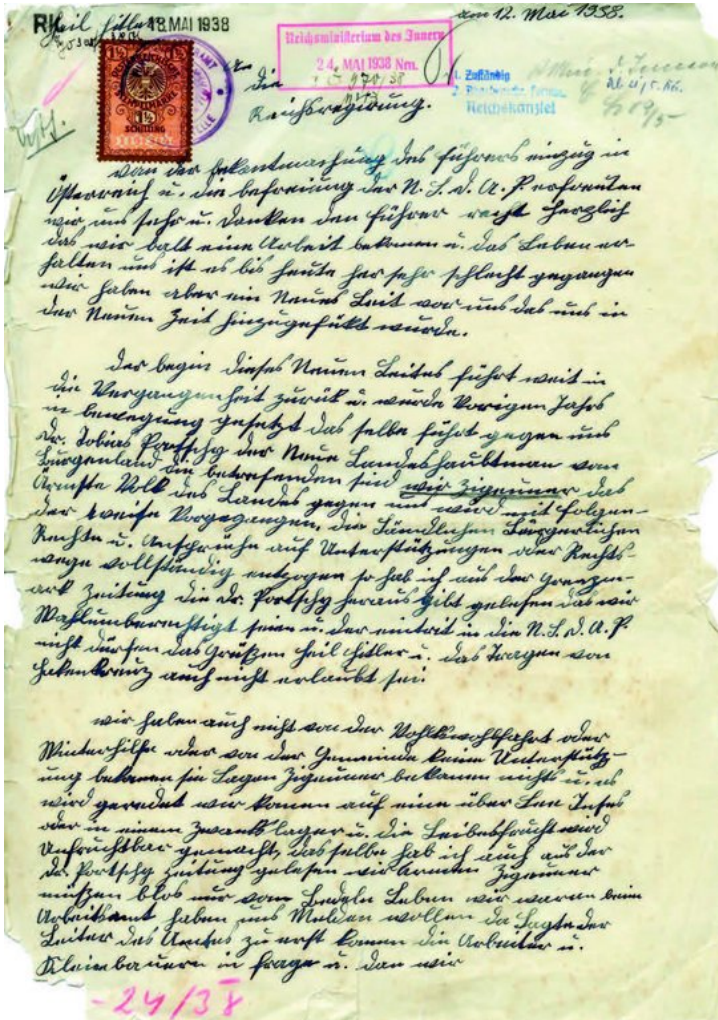 Heil Hitler
18. MAI 1938
am 12. Mai 1938.
Reichsministerium des Innern
24. MAI 1938 Nm.
1. Zuständig
Reichskanzlei
An
die
Reichsregirung.
1½
1½
SCHILLING
von der bekantmachung des führers einzug in
Österreich u. die befreiung der N. S. D. A. P. erfreuten
wir uns sehr u. Danken den führer recht herzlich
das wir balt eine Arbeit bekomen u. das Leben er-
halten uns ist es bis heute her sehr schlecht gegangen
wir haben aber ein Neues Leit vor uns das uns in
der Neuen Zeit hinzugefükt wurde.
der begin dieses Neuen Leites führt weit in
die Vergangenheit zurük u. wurde Vorigen Jahrs
in bewegung gesetzt das selbe führt gegen uns
Dr. Tobias Portschy der Neue Landeshaubtman vom
Burgenland die betrefenden sind wir Zigeuner das
Ärmste Volk des Landes gegen uns wird mit folgen-
der weise Vorgegangen, die Sämdlichen Bürgerlichen
Rechte u. Ansprüche auf Unterstützungen oder Rechts-
wege vollständig entzogen so hab ich aus der Grenzm-
ark Zeitung die Dr. Portschy heraus Gibt gelesen das wir
Wahlumberechtigt seien u. der eintrit in die N. S. D. A. P.
nicht dürfen das Grüßen Heil Hitler u. das Tragen von
Hakenkreuz auch nicht erlaubt sei.
wir haben auch nicht von der Vohlkswohlfahrt oder
Winterhilfe oder von der Gemeinde keine Unterstütz-
ung bekomen sie Sagen Zigeuner bekomen nichts u. es
wird geredet wir komen auf eine über See Insel
oder in einem Zwankslager u. die Leibesfrucht wird
Unfruchtbar gemacht, dasselbe hab ich auch aus der
Dr. Portschy Zeitung gelesen wir Armen Zigeuner
müßen blos nur vom Bedeln Leben wir waren beim
Arbeitsamt haben uns Melden wollen da Sagte der
Leiter des Amtes zu erst komen die Arbeiter u.
Kleinbauern in frage u. dan wir
-24/38